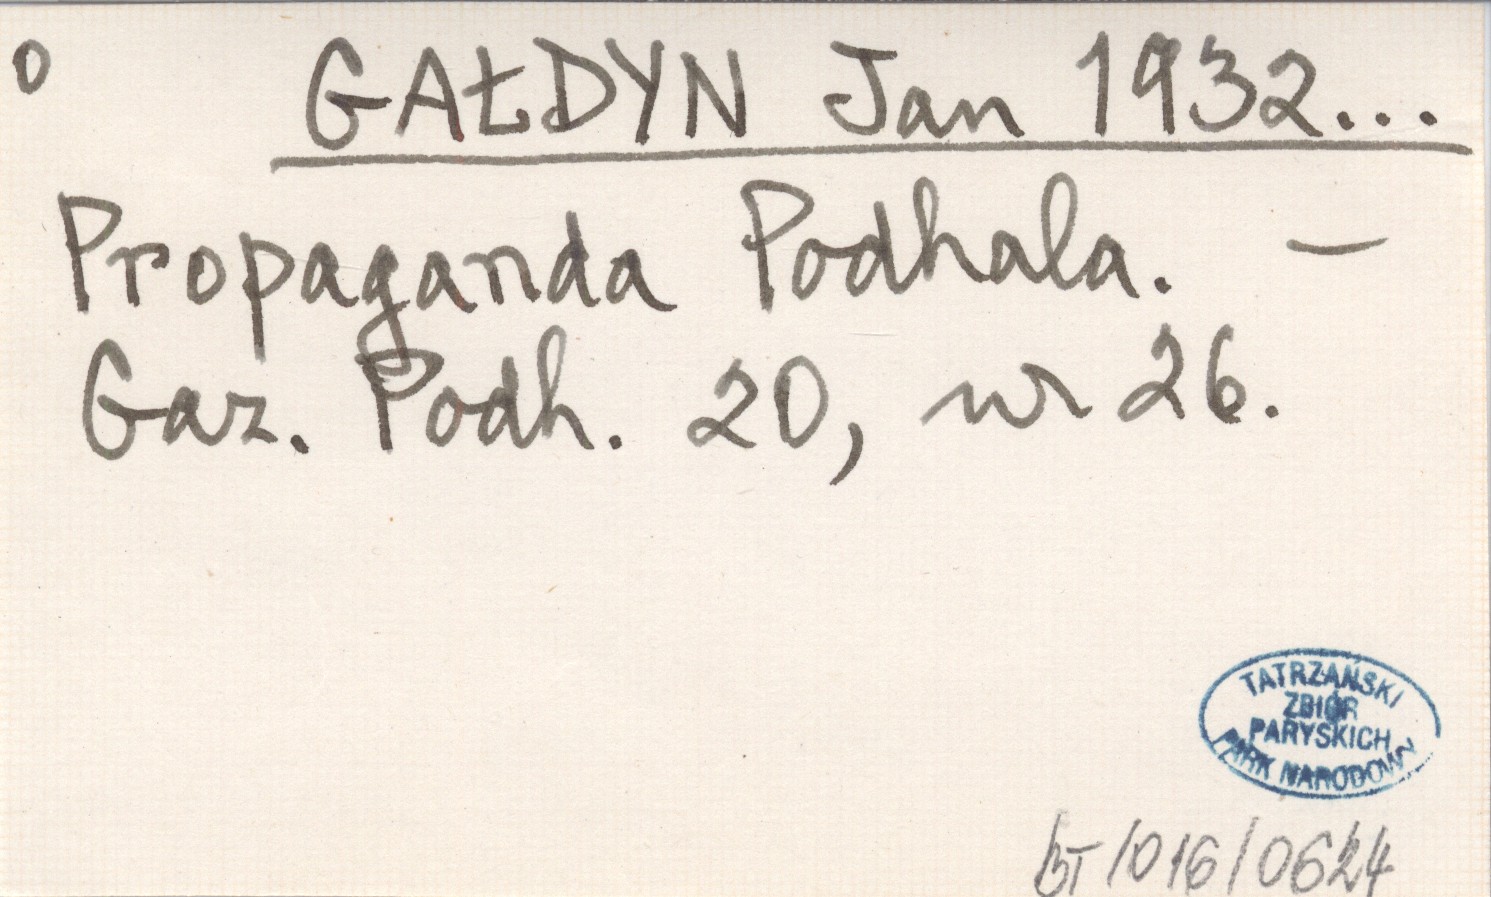 o GAŁDYN Jan 1932...
Propaganda Podhala. —
Gaz. Podh. 20, nr 26.
TATRZAŃSKI
ZBIÓR
PARYSKICH
PARK NARODOWY
bT/016/0624